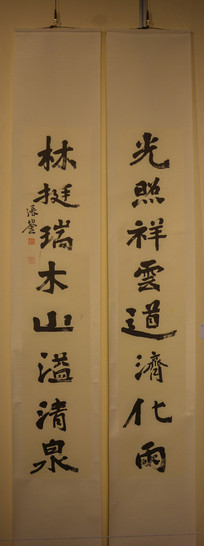 光照祥雲道濟化雨
林挺瑞木山溢清泉